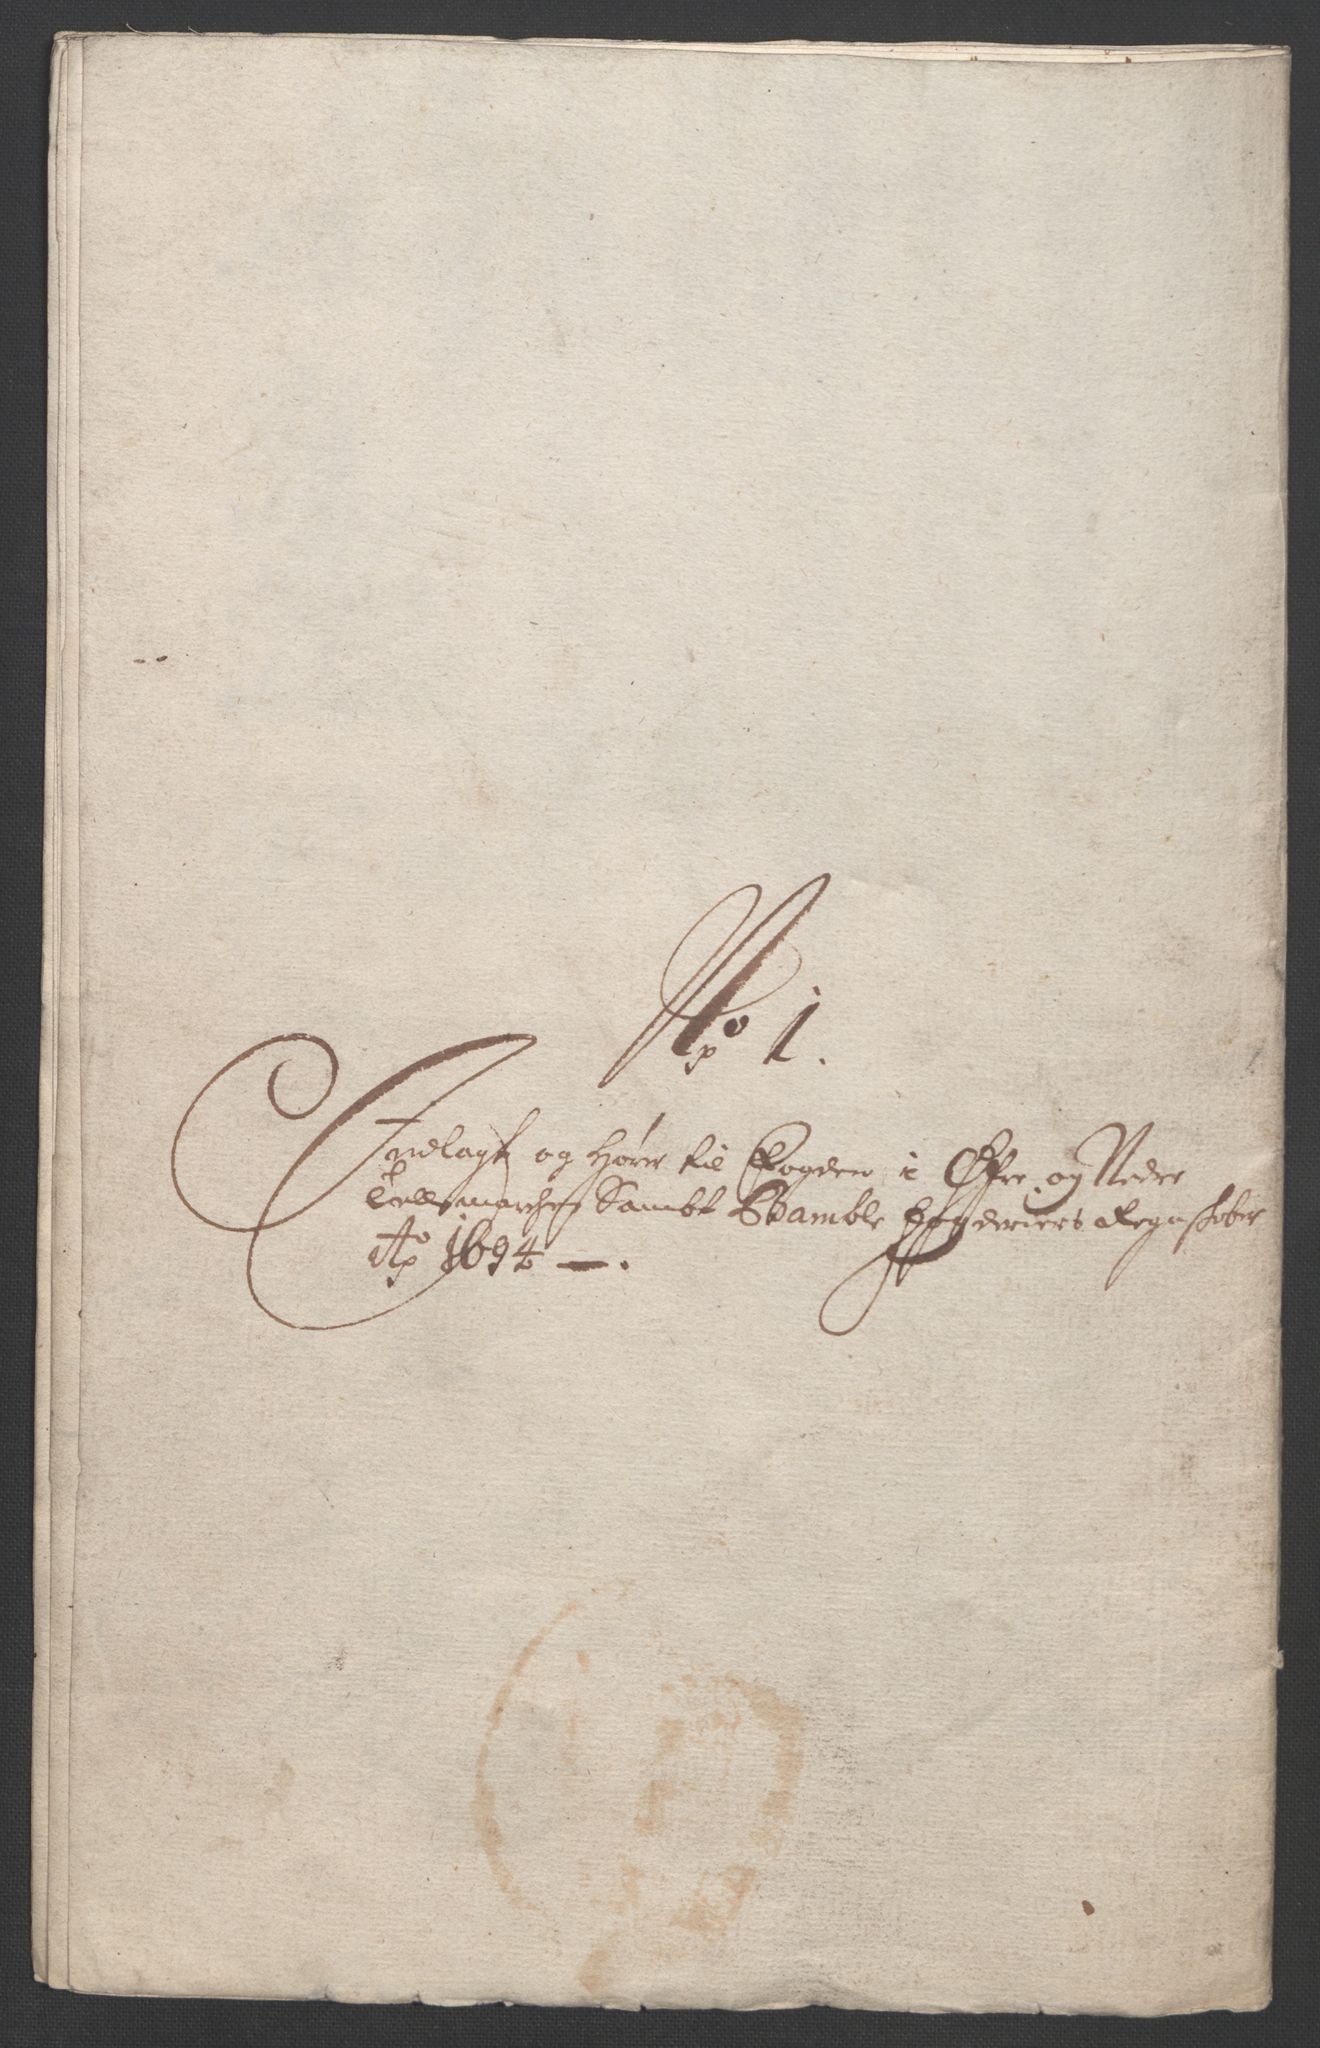 No 1.
Indlagt og hører til Fogden i Øfre og Nedre
Tellemarchen Sambt Bamble fogderiers Regnskober
Ao 1694 —.